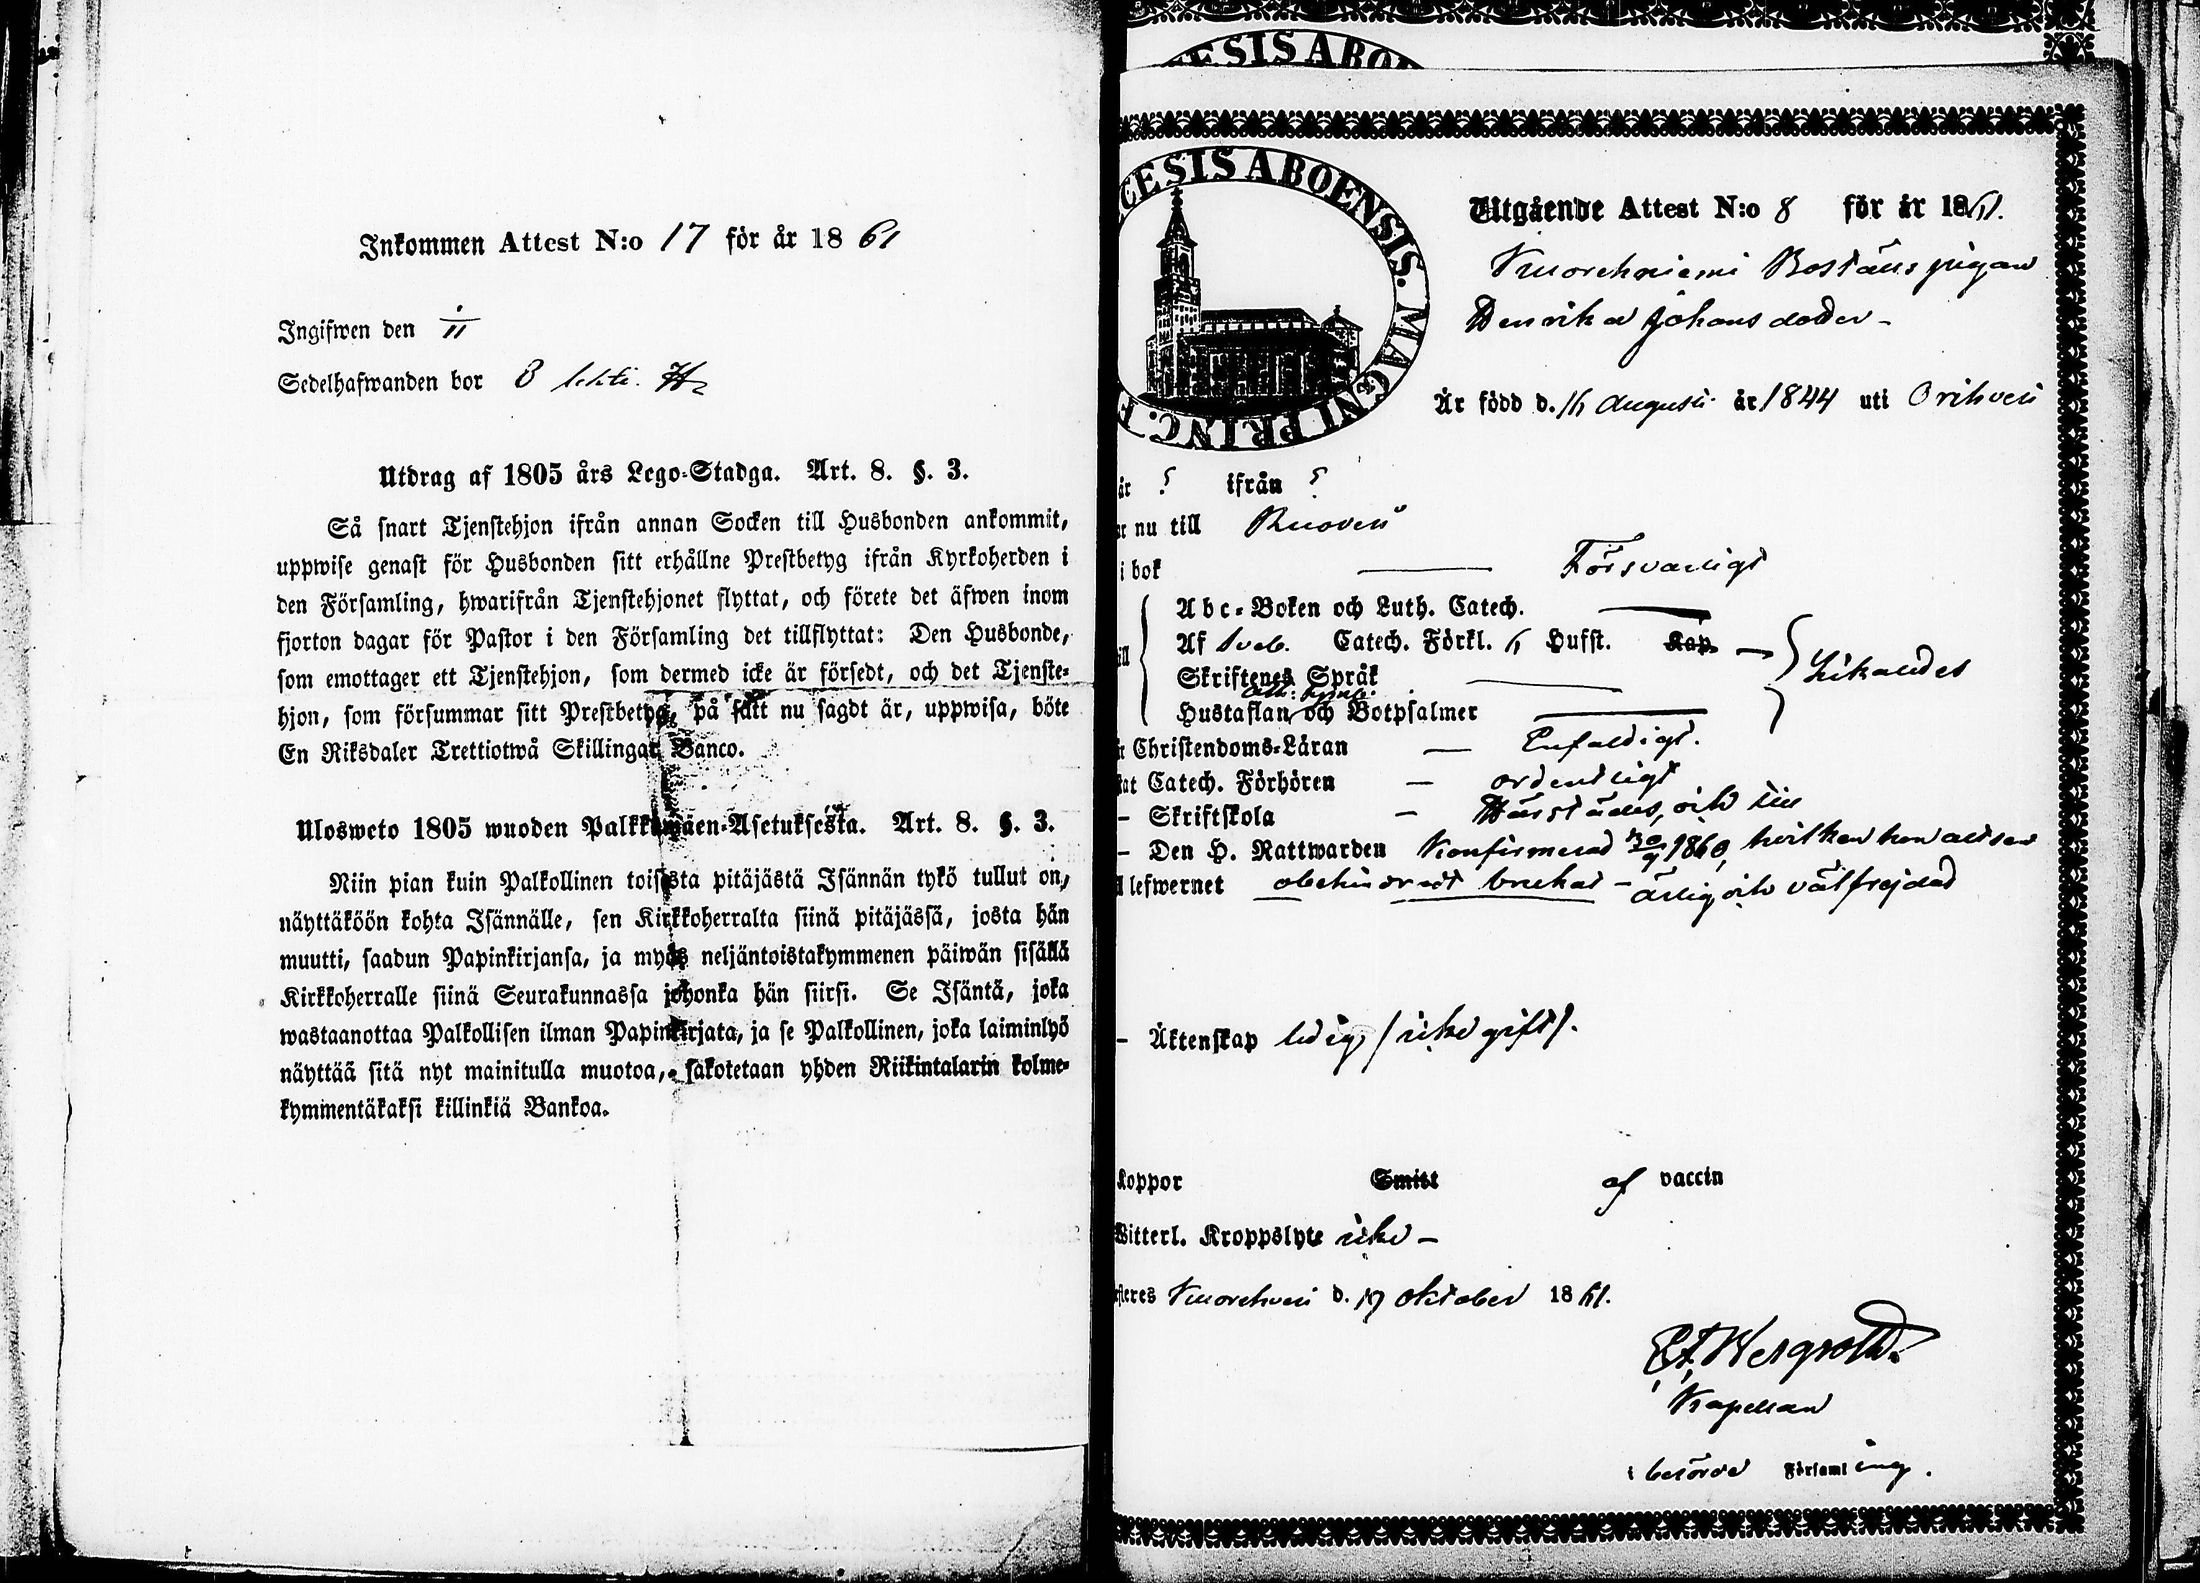 Inkommen Attest N:o 17 för år 1861
Ingifwen den
Sedelhafwanden bor
Utdrag af 1805 års Lego-Stadga. Art. 8. §. 3.
Så snart Tjenstehjon ifrån annan Socken till Husbonden ankommit,
uppwise genast för Husbonden sitt erhållne Prestbetyg ifrån Kyrkoherden i
den Församling, hwarifrån Tjenstehjonet flyttat, och förete det äfwen inom
fjorton dagar för Pastor i den Församling det tillflyttat: Den Husbonde,
som emottager ett Tjenstehjon, som dermed icke är försedt, och det Tjenste-
hjon, som försummar sitt Prestbetyg, på sätt nu sagdt är, uppwisa, böte
En Riksdaler Trettiotwå Skillingar Banco.
Ulosweto 1805 wuoden Palkkawäen-Asetuksesta. Art. 8. §. 3.
Niin pian kuin Palkollinen toisesta pitäjästä Isännän tykö tullut on,
näyttäköön kohta Isännälle, sen Kirkkoherralta siinä pitäjässä, josta hän
muutti, saadun Papinkirjansa, ja myös neljäntoistakymmenen päiwän sisällä
Kirkkoherralle siinä Seurakunnassa johonka hän siirsi. Se Isäntä, joka
wastaanottaa Palkollisen ilman Papinkirjata, ja se Palkollinen, joka laiminlyö
näyttää sitä nyt mainitulla muotoa, sakotetaan yhden Riikintalarin kolme-
kymmentäkaksi killinkiä Bankoa.
ESIS ABOE
CESIS ABOENSIS. MAGNI PRINC. F
Utgående Attest N:o 8 för år 1861.
Kuorehniemi Bostäus pigan
Henrika Johansdoter
Är född d. 16 Augusti år 1844 uti Orihvesi
är ? ifrån ?
nu till Ruovesi
i bok Försvarligt
Abc-Boken och Luth. Catech.
Af Sveb. Catech. Förkl. 6 Hufst. Kap.
Skriftenes Språk
Hustaflan och Botpsalmer
Likaledes
Christendoms-Läran Enfaldigt.
Catech. Förhören ordentligt
Skriftskola Härstädes, och till
Den H. Nattwarden Konfirmerad 30/9 1860, hvilken hon altsen
lefwernet obehindradt brukat - ärlig och välfrejdad
Äktenskap ledig, (icke gift).
Koppor Smitt af vaccin
Witterl. Kroppslyte icke
Kuorehvesi d. 17 oktober 1861.
Kapellan
i berörde Församling.